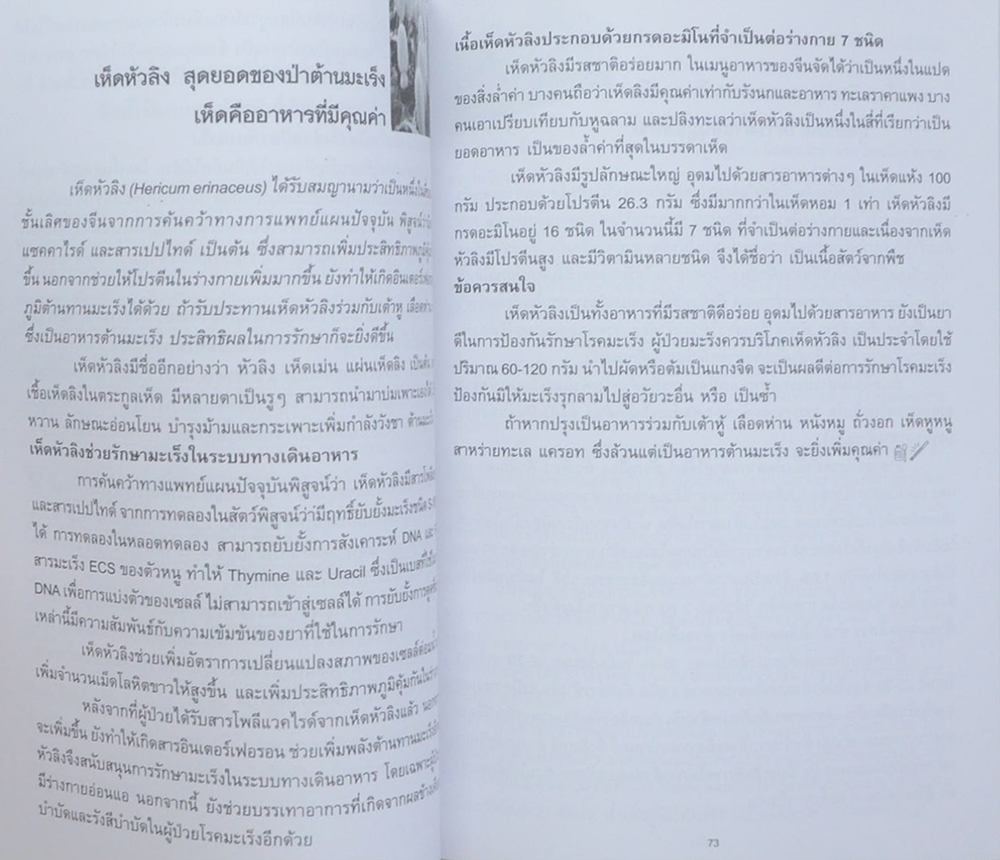 เห็ดหัวลิง สุดยอดของป่าต้านมะเร็ง
เห็ดคืออาหารที่มีคุณค่า
เห็ดหัวลิง (Hericum erinaceus) ได้รับสมญานามว่าเป็นหนึ่งใน
ชั้นเลิศของจีนจากการค้นคว้าทางการแพทย์แผนปัจจุบัน พิสูจน์
แซคคาไรด์ และสารเปปไทด์ เป็นต้น ซึ่งสามารถเพิ่มประสิทธิภาพ
ขึ้น นอกจากช่วยให้โปรตีนในร่างกายเพิ่มมากขึ้น ยังทำให้เกิด
ภูมิต้านทานมะเร็งได้ด้วย ถ้ารับประทานเห็ดหัวลิงร่วมกับเต้าหู เลือด
ซึ่งเป็นอาหารต้านมะเร็ง ประสิทธิผลในการรักษาก็จะยิ่งดีขึ้น
เห็ดหัวลิงมีชื่ออีกอย่างว่า หัวลิง เห็ดเม่น แผ่นเห็ดลิง เป็นต้น
เชื้อเห็ดลิงในตระกูลเห็ด มีหลายตาเป็นรูๆ สามารถนำมาบ่มเพาะ
หวาน ลักษณะอ่อนโยน บำรุงม้ามและกระเพาะเพิ่มกำลังวังชา
เห็ดหัวลิงช่วยรักษามะเร็งในระบบทางเดินอาหาร
การค้นคว้าทางแพทย์แผนปัจจุบันพิสูจน์ว่า เห็ดหัวลิงมีสาร
และสารเปปไทด์ จากการทดลองในสัตว์พิสูจน์ว่ามีฤทธิ์ยับยั้งมะเร็งชนิด
ได้ การทดลองในหลอดทดลอง สามารถยับยั้งการสังเคราะห์ DNA และ
สารมะเร็ง ECS ของตัวหนู ทำให้ Thymine และ Uracil ซึ่งเป็นเบสที่ใช้ใน
DNA เพื่อการแบ่งตัวของเซลล์ ไม่สามารถเข้าสู่เซลล์ได้ การยับยั้งการ
เหล่านี้มีความสัมพันธ์กับความเข้มข้นของยาที่ใช้ในการรักษา
เห็ดหัวลิงช่วยเพิ่มอัตราการเปลี่ยนแปลงสภาพของเซลล์
เพิ่มจำนวนเม็ดโลหิตขาวให้สูงขึ้น และเพิ่มประสิทธิภาพภูมิคุ้มกันใน
หลังจากที่ผู้ป่วยได้รับสารโพลีแวคไรด์จากเห็ดหัวลิงแล้ว
จะเพิ่มขึ้น ยังทำให้เกิดสารอินเตอร์เฟอรอน ช่วยเพิ่มพลังต้านทานมะเร็ง
หัวลิงจึงสนับสนุนการรักษามะเร็งในระบบทางเดินอาหาร โดยเฉพาะ
มีร่างกายอ่อนแอ นอกจากนี้ ยังช่วยบรรเทาอาการที่เกิดจากผลข้าง
บำบัดและรังสีบำบัดในผู้ป่วยโรคมะเร็งอีกด้วย
เนื้อเห็ดหัวลิงประกอบด้วยกรดอะมิโนที่จำเป็นต่อร่างกาย 7 ชนิด
เห็ดหัวลิงมีรสชาติอร่อยมาก ในเมนูอาหารของจีนจัดได้ว่าเป็นหนึ่งในแปด
ของสิ่งล้ำค่า บางคนถือว่าเห็ดลิงมีคุณค่าเท่ากับรังนกและอาหาร ทะเลราคาแพง บาง
คนเอาเปรียบเทียบกับหูฉลาม และปลิงทะเลว่าเห็ดหัวลิงเป็นหนึ่งในสี่ที่เรียกว่าเป็น
ยอดอาหาร เป็นของล้ำค่าที่สุดในบรรดาเห็ด
เห็ดหัวลิงมีรูปลักษณะใหญ่ อุดมไปด้วยสารอาหารต่างๆ ในเห็ดแห้ง 100
กรัม ประกอบด้วยโปรตีน 26.3 กรัม ซึ่งมีมากกว่าในเห็ดหอม 1 เท่า เห็ดหัวลิงมี
กรดอะมิโนอยู่ 16 ชนิด ในจำนวนนี้มี 7 ชนิด ที่จำเป็นต่อร่างกายและเนื่องจากเห็ด
หัวลิงมีโปรตีนสูง และมีวิตามินหลายชนิด จึงได้ชื่อว่า เป็นเนื้อสัตว์จากพืช
ข้อควรสนใจ
เห็ดหัวลิงเป็นทั้งอาหารที่มีรสชาติดีอร่อย อุดมไปด้วยสารอาหาร ยังเป็นยา
ดีในการป้องกันรักษาโรคมะเร็ง ผู้ป่วยมะเร็งควรบริโภคเห็ดหัวลิง เป็นประจำโดยใช้
ปริมาณ 60-120 กรัม นำไปผัดหรือต้มเป็นแกงจืด จะเป็นผลดีต่อการรักษาโรคมะเร็ง
ป้องกันมิให้มะเร็งรุกลามไปสู่อวัยวะอื่น หรือ เป็นซ้ำ
ถ้าหากปรุงเป็นอาหารร่วมกับเต้าหู้ เลือดห่าน หนังหมู ถั่วงอก เห็ดหูหนู
สาหร่ายทะเล แครอท ซึ่งล้วนแต่เป็นอาหารต้านมะเร็ง จะยิ่งเพิ่มคุณค่า
73